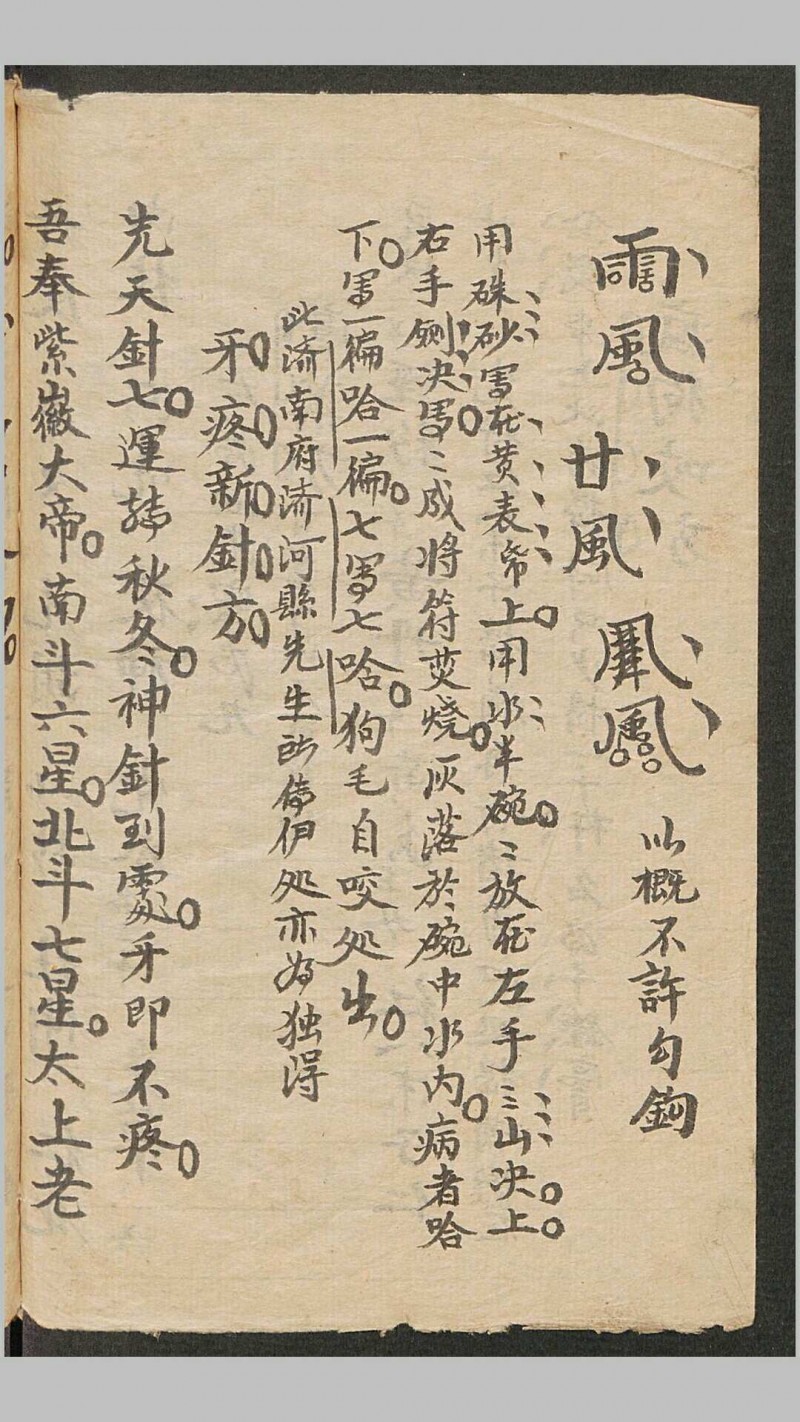 風 廿風 以概不許勾鈎
用硃砂写在黄表帋上用水半碗〻放在左手三山决上
右手剑决写〻成将符焚烧灰落於碗中水内病者哈
下写一徧哈一徧七写七哈狗毛自咬处出
此済南府济河縣先生所传伊处亦为独淂
牙疼新針方
先天針七運转秋冬神針到處牙即不疼
吾奉紫巌大帝南斗六星北斗七星太上老